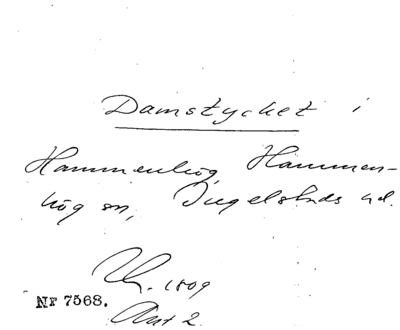 Damstycket i
Hammenhög, Hammen-
hög sn, Ingelstads hd.
1809
NF 7568.
Akt 2.